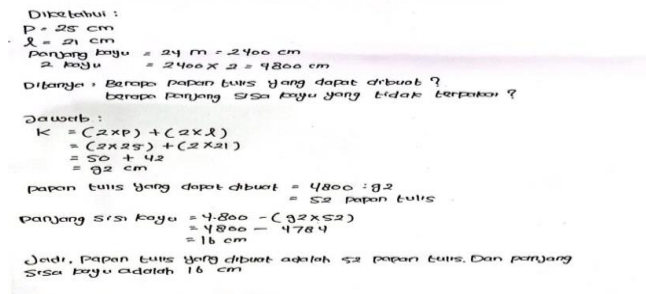 Diketahui :
P = 25 cm
l = 21 cm
Panjang kayu = 24 m = 2400 cm
2 kayu = 2400 x 2 = 4800 cm
Ditanya : Berapa papan tulis yang dapat dibuat ?
berapa panjang sisa kayu yang tidak terpakai ?
Jawab :
K = (2xP) + (2xl)
= (2x25) + (2x21)
= 50 + 42
= 92 cm
papan tulis yang dapat dibuat = 4800 : 92
= 52 papan tulis
panjang sisi kayu = 4.800 - (92x52)
= 4800 - 4784
= 16 cm
Jadi, papan tulis yang dibuat adalah 52 papan tulis. Dan panjang
sisa kayu adalah 16 cm